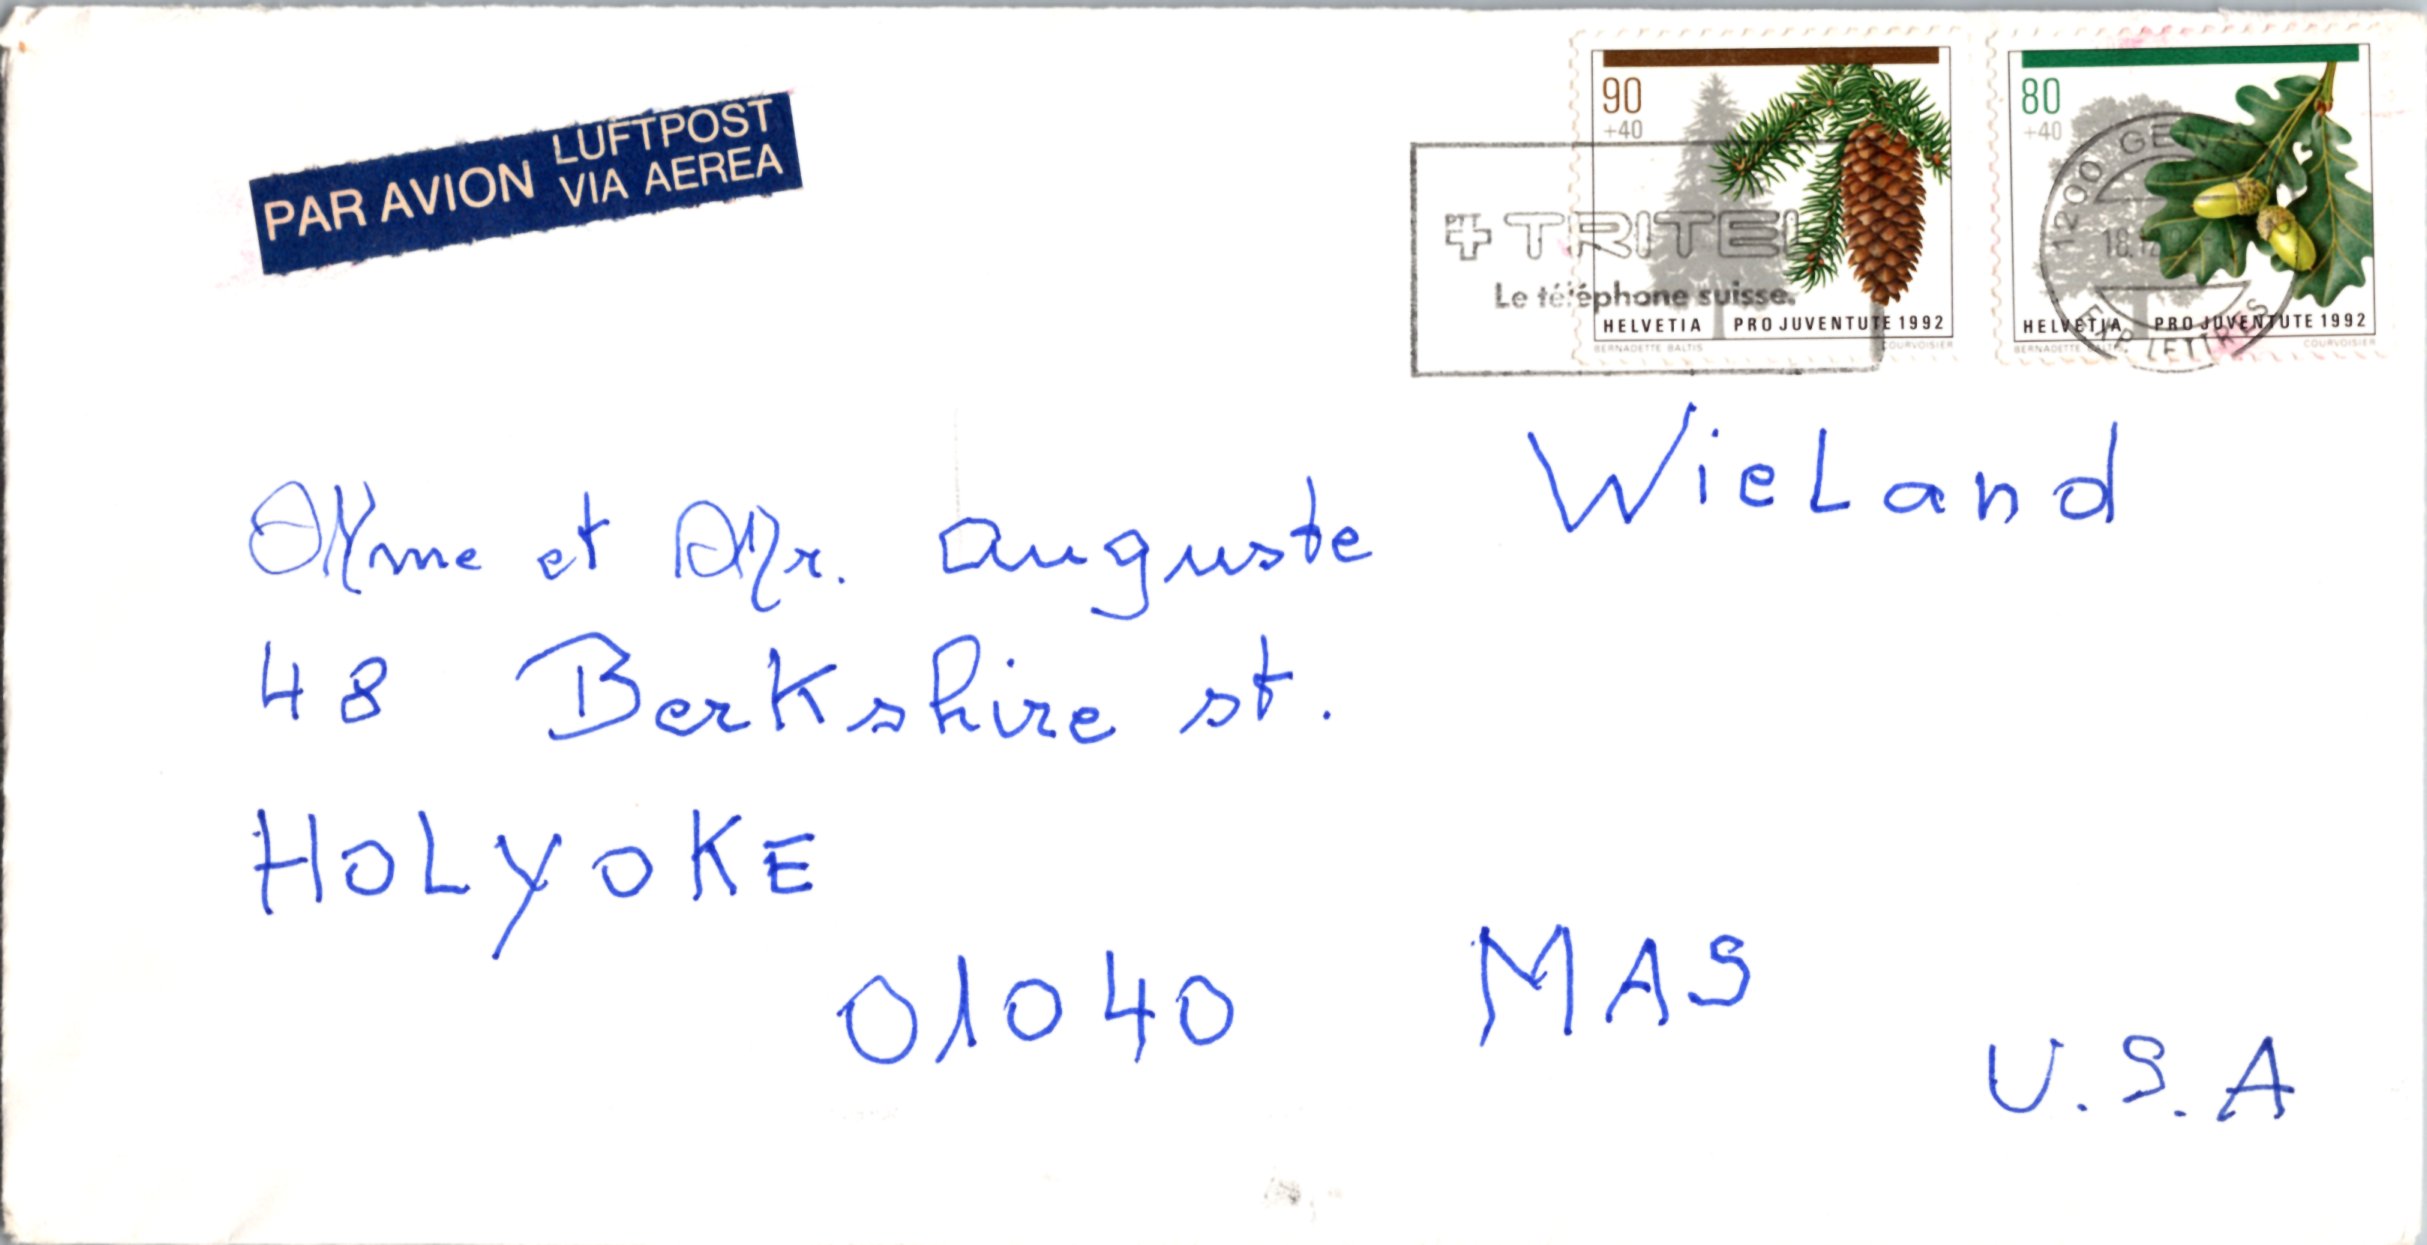 PAR AVION LUFTPOST
VIA AEREA
90
+40
HELVETIA PRO JUVENTUTE 1992
BERNADETTE BALTIS COURVOISIER
80
+40
HELVETIA PRO JUVENTUTE 1992
BERNADETTE COURVOISIER
PTT TRITEL
Le téléphone suisse.
1200
EXP. LETTRES
Mme et Mr. Auguste Wieland
48 Berkshire st.
HOLYOKE
01040 MAS
U.S.A